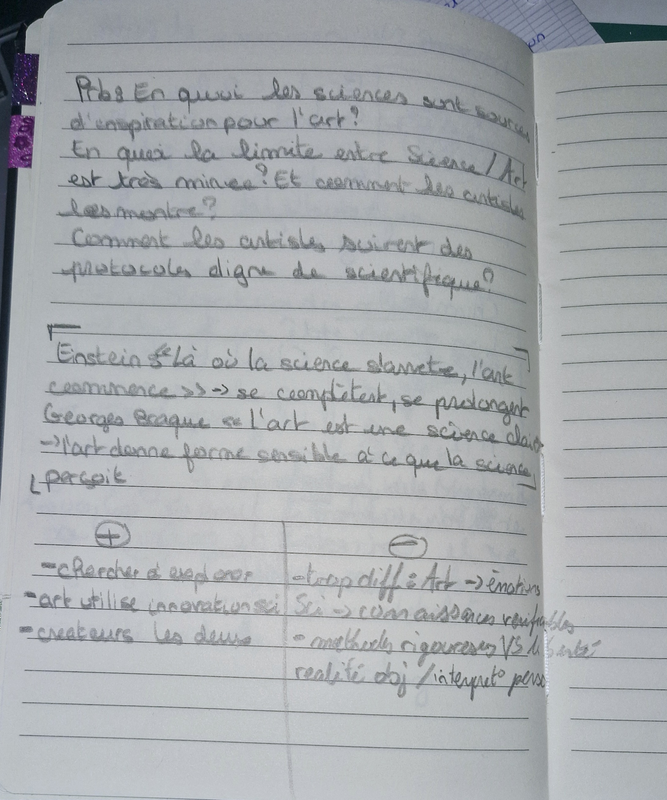 Prb: En quoi les sciences sont sources
d'enspiration pour l'art?
En quoi la limite entre Science / Art
est très mince? Et comment les artistes
les montre?
Comment les artistes suivent des
protocoles digne de scientifique?
Einstein « Là où la science s'arrete, l'art
commence » → se complètent, se prolongent
Georges Braque « l'art est une science
→ l'art donne forme sensible à ce que la science
perçoit
+
-
- chercher à explorer
- trop diff : Art → émotions
- art utilise innovation sci
Sci → connaissances vérifiables
- créateurs les deux
- methodes rigoureuses VS liberté
realité obj / interpret° perso